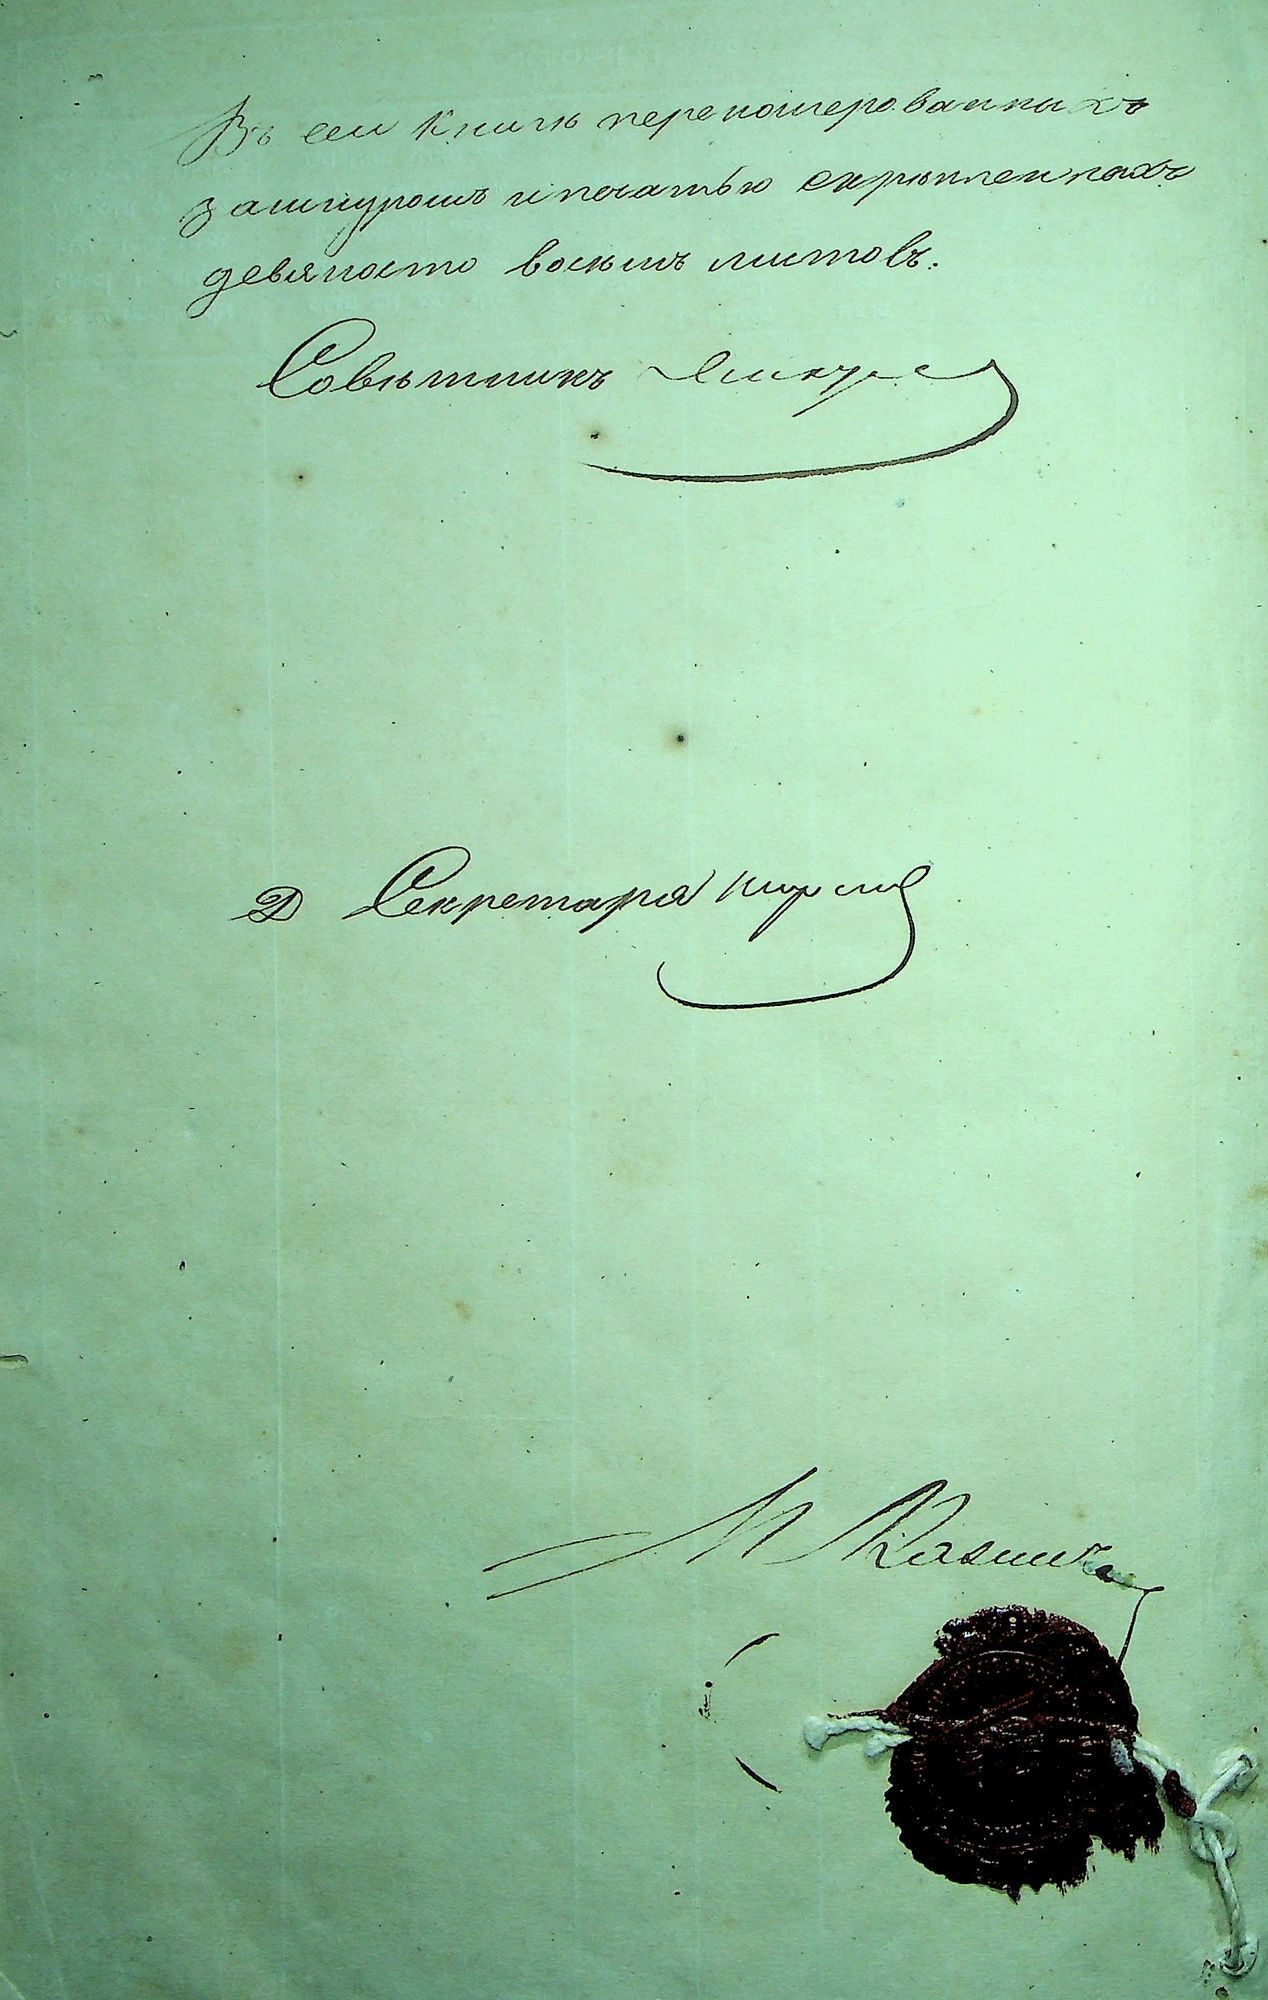 Въ сей Книгѣ переномерованныхъ
зашнуромъ и печатью скрѣпленныхъ
девяносто восемь листовъ.
Совѣтникъ
Д Секретаря
М